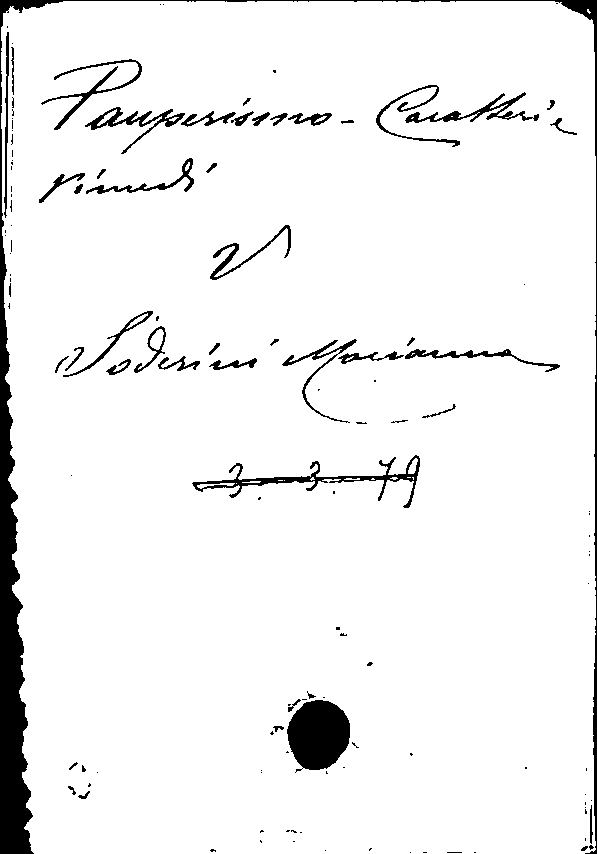 Pauperismo - Caratteri e
rimedi
V
Soderini Marianna
3. 3. 79